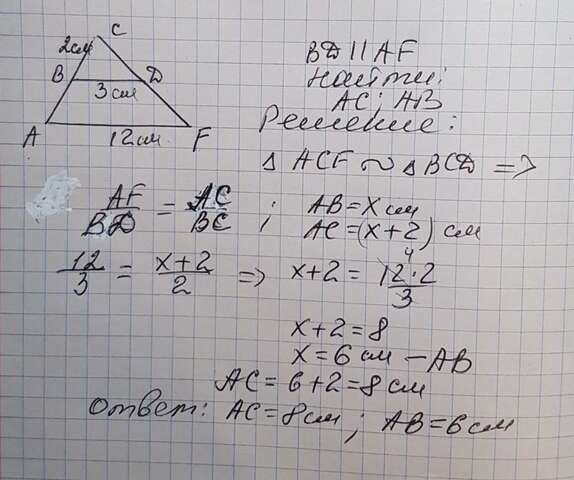 C
2см
B D
3 см
A 12 см F
BD || AF
Найти:
AC; AB
Решение:
Δ ACF ~ Δ BCD =>
AF/BD = AC/BC ; AB = x см
AC = (x+2) см
12/3 = x+2/2 => x+2 = 12·2/3 4
x+2=8
x=6 см – AB
AC = 6+2=8 см
Ответ: AC=8см; AB=6см